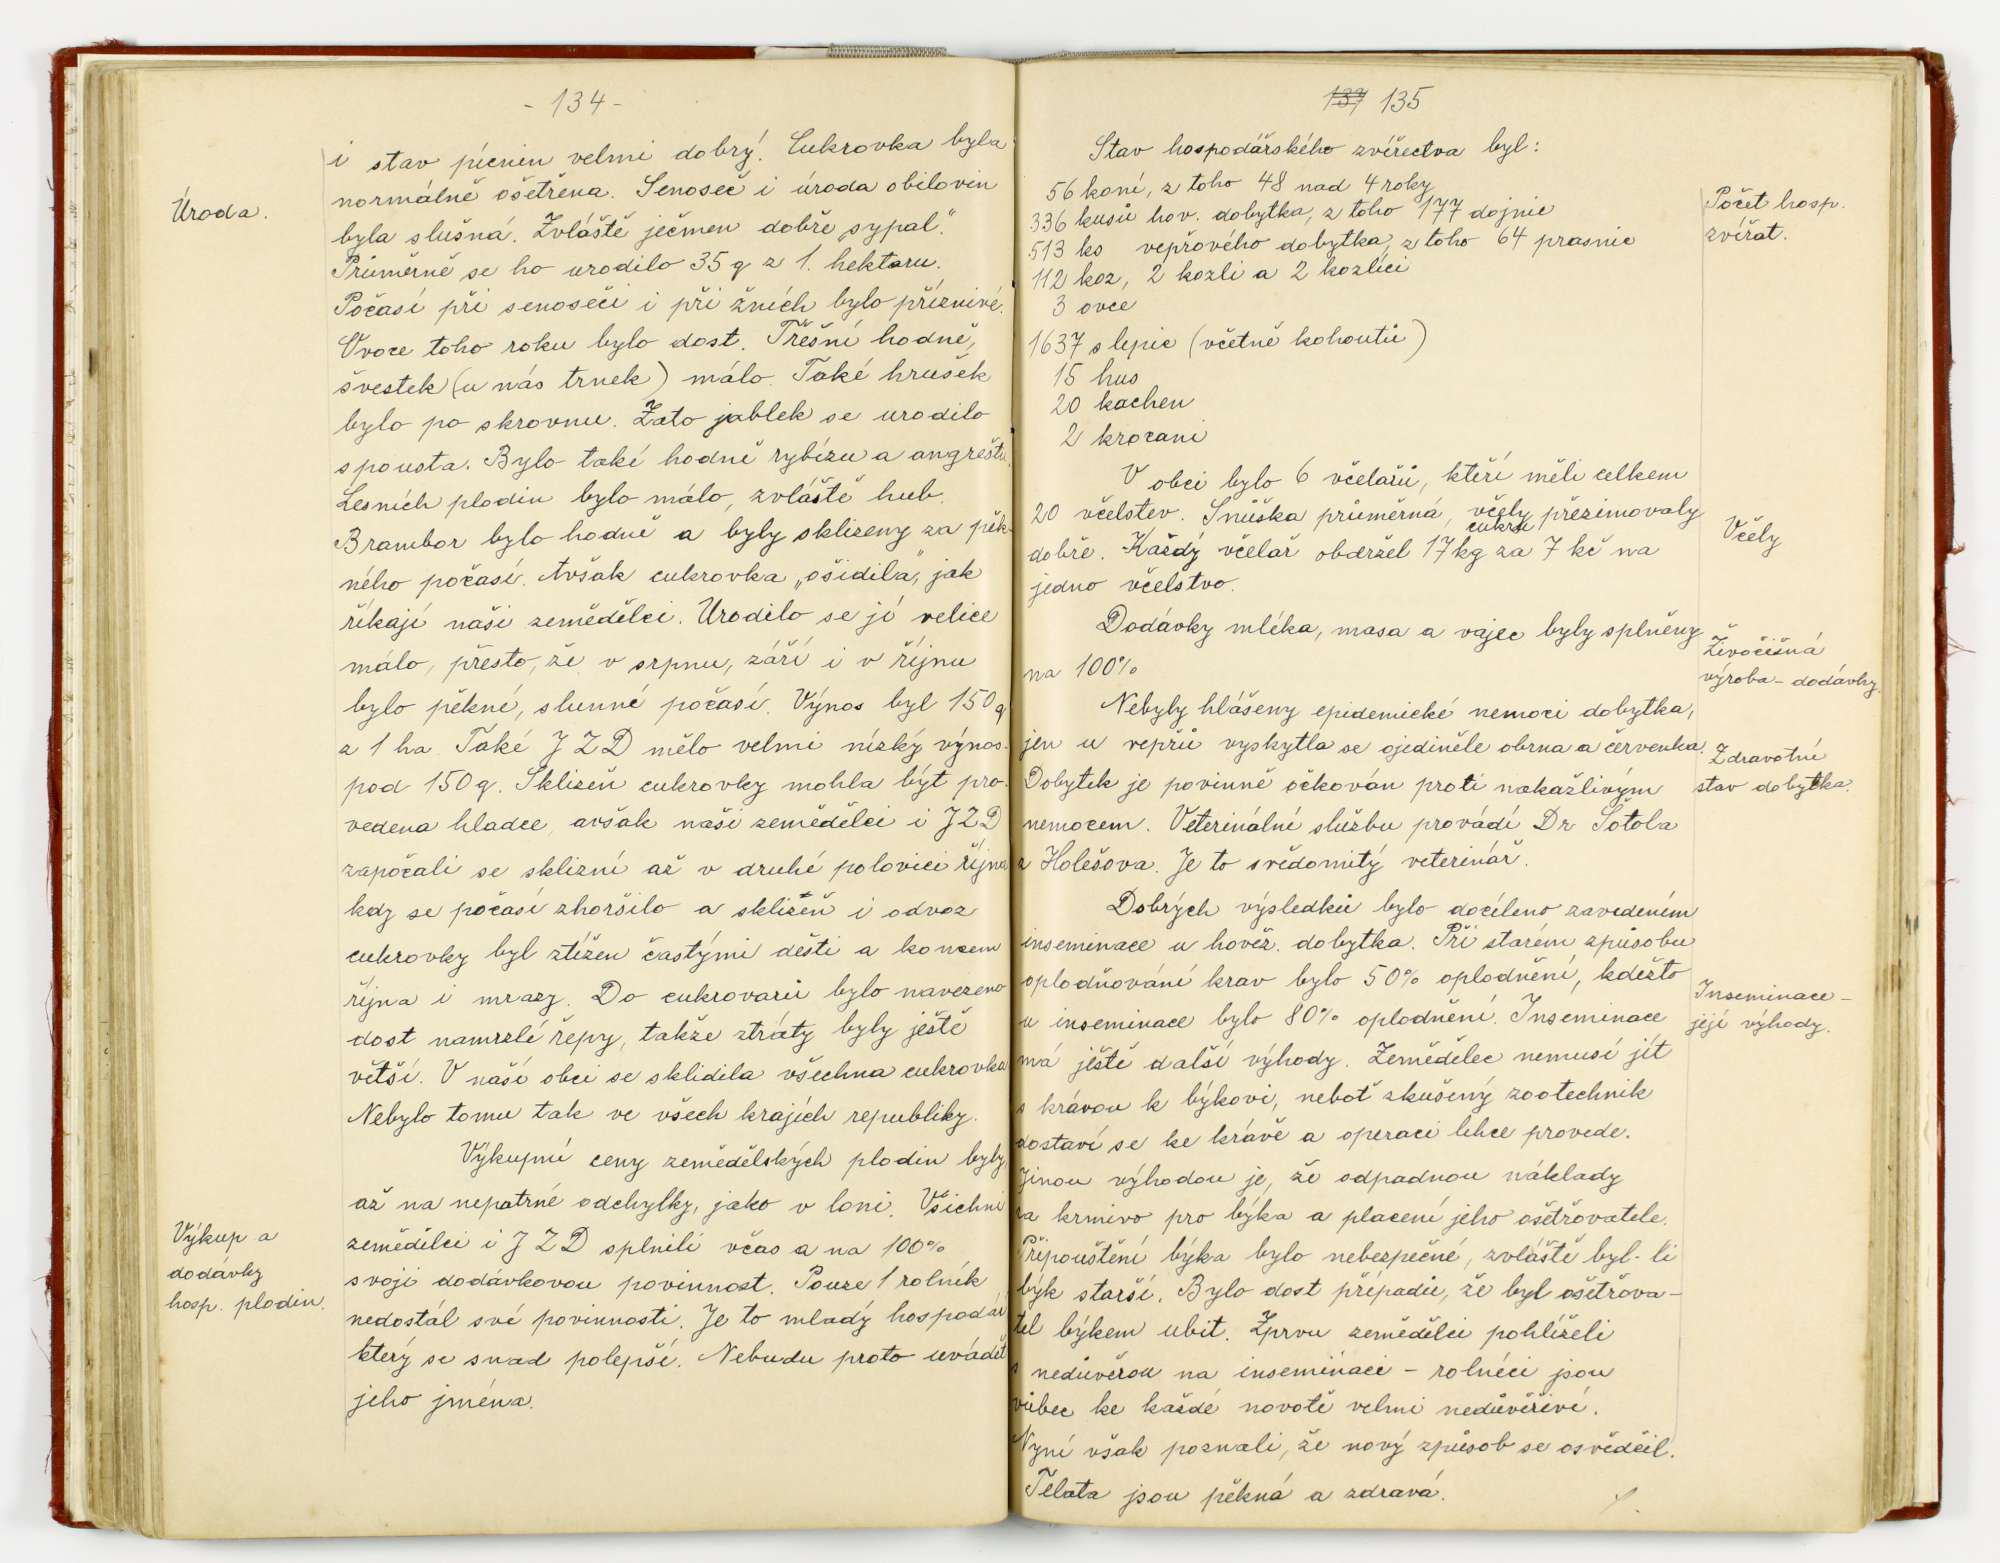 - 134 -
i stav pícnin velmi dobrý. Cukrovka byla
normálně ošetřena. Senoseč i úroda obilovin
Úroda.
byla slušná. Zvláště ječmen dobře „sypal“.
Průměrně se ho urodilo 35 q z 1. hektaru.
Počasí při senoseči i při žních bylo příznivé.
Ovoce toho roku bylo dost. Třešní hodně,
švestek (u nás trnek) málo. Také hrušek
bylo po skrovnu. Zato jablek se urodilo
spousta. Bylo také hodně rybízu a angreštu.
Lesních plodin bylo málo, zvláště hub.
Brambor bylo hodně a byly sklizeny za pěk-
ného počasí. Avšak cukrovka „ošidila“, jak
říkají naši zemědělci. Urodilo se jí velice
málo, přesto, že v srpnu, září i v říjnu
bylo pěkné, slunné počasí. Výnos byl 150 q
z 1 ha. Také JZD mělo velmi nízký výnos-
pod 150 q. Sklizeň cukrovky mohla být pro-
vedena hladce, avšak naši zemědělci i JZD
započali se sklizní až v druhé polovici října
kdy se počasí zhoršilo a sklizeň i odvoz
cukrovky byl ztížen častými dešti a koncem
října i mrazy. Do cukrovarů bylo navezeno
dost namrzlé řepy, takže ztráty byly ještě
větší. V naší obci se sklidila všechna cukrovka
Nebylo tomu tak ve všech krajích republiky.
Výkupní ceny zemědělských plodin byly,
až na nepatrné odchylky, jako v loni. Všichni
Výkup a
dodávky
hosp. plodin.
zemědělci i JZD splnili včas a na 100%
svoji dodávkovou povinnost. Pouze 1 rolník
nedostál své povinnosti. Je to mladý hospodář
který se snad polepší. Nebudu proto uvádět
jeho jména.
137 135
Stav hospodářského zvířectva byl:
56 koní, z toho 48 nad 4 roky
336 kusů hov. dobytka, z toho 177 dojnic
Počet hosp.
zvířat.
513 ks vepřového dobytka, z toho 64 prasnic
112 koz, 2 kozli a 2 kozlíci
3 ovce
1637 slepic (včetně kohoutů)
15 hus
20 kachen
2 krocani
V obci bylo 6 včelařů, kteří měli celkem
20 včelstev. Snůška průměrná, včely přezimovaly
Včely
cukru
dobře. Každý včelař obdržel 17 kg za 7 kč na
jedno včelstvo.
Dodávky mléka, masa a vajec byly splněny
na 100%
Živočišná
výroba - dodávky.
Nebyly hlášeny epidemické nemoci dobytka,
jen u vepřů vyskytla se ojediněle obrna a červenka.
Zdravotní
stav dobytka.
Dobytek je povinně očkován proti nakažlivým
nemocem. Veterinální službu provádí Dr Šotola
z Holešova. Je to svědomitý veterinář.
Dobrých výsledků bylo docíleno zavedením
inseminace u hověz. dobytka. Při starém způsobu
oplodňování krav bylo 50% oplodnění, kdežto
Inseminace -
její výhody.
u inseminace bylo 80% oplodnění. Inseminace
má ještě další výhody. Zemědělec nemusí jít
s krávou k býkovi, neboť zkušený zootechnik
dostaví se ke krávě a operaci lehce provede.
Jinou výhodou je, že odpadnou náklady
za krmivo pro býka a placení jeho ošetřovatele.
Připouštění býka bylo nebezpečné, zvláště byl-li
býk starší. Bylo dost případů, že byl ošetřova-
tel býkem ubit. Zprvu zemědělci pohlíželi
s nedůvěrou na inseminaci - rolníci jsou
vůbec ke každé novotě velmi nedůvěřiví.
Nyní však poznali, že nový způsob se osvědčil.
Telata jsou pěkná a zdravá.